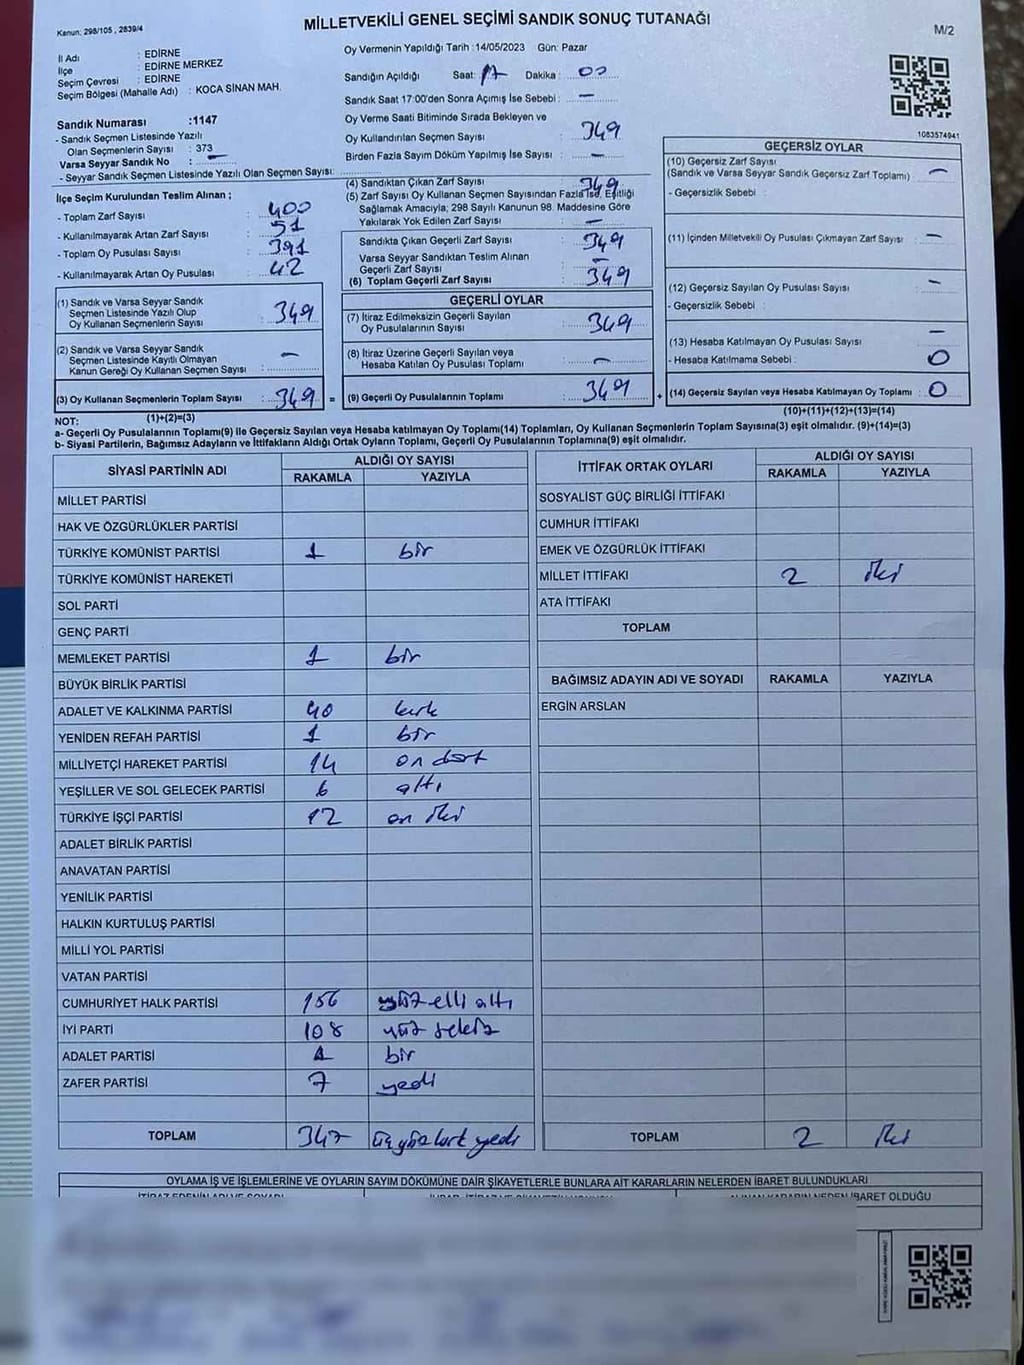 Kanun: 298/105 , 2839/4
MİLLETVEKİLİ GENEL SEÇİMİ SANDIK SONUÇ TUTANAĞI
M/2
İl Adı : EDİRNE
İlçe : EDİRNE MERKEZ
Seçim Çevresi : EDİRNE
Seçim Bölgesi (Mahalle Adı) : KOCA SİNAN MAH.
Sandık Numarası :1147
- Sandık Seçmen Listesinde Yazılı
Olan Seçmenlerin Sayısı : 373
Varsa Seyyar Sandık No : —
- Seyyar Sandık Seçmen Listesinde Yazılı Olan Seçmen Sayısı:
İlçe Seçim Kurulundan Teslim Alınan ;
- Toplam Zarf Sayısı : 400
- Kullanılmayarak Artan Zarf Sayısı : 51
- Toplam Oy Pusulası Sayısı : 391
- Kullanılmayarak Artan Oy Pusulası : 42
(1) Sandık ve Varsa Seyyar Sandık
Seçmen Listesinde Yazılı Olup
Oy Kullanan Seçmenlerin Sayısı : 349
(2) Sandık ve Varsa Seyyar Sandık
Seçmen Listesinde Kayıtlı Olmayan
Kanun Gereği Oy Kullanan Seçmen Sayısı : —
(3) Oy Kullanan Seçmenlerin Toplam Sayısı : 349 =
(1)+(2)=(3)
Oy Vermenin Yapıldığı Tarih :14/05/2023 Gün: Pazar
Sandığın Açıldığı Saat: 17 Dakika : 00
Sandık Saat 17:00'den Sonra Açımış İse Sebebi : —
Oy Verme Saati Bitiminde Sırada Bekleyen ve
Oy Kullandırılan Seçmen Sayısı : 349
Birden Fazla Sayım Döküm Yapılmış İse Sayısı : —
(4) Sandıktan Çıkan Zarf Sayısı : 349
(5) Zarf Sayısı Oy Kullanan Seçmen Sayısından Fazla İse, Eşitliği
Sağlamak Amacıyla; 298 Sayılı Kanunun 98. Maddesine Göre
Yakılarak Yok Edilen Zarf Sayısı : —
Sandıkta Çıkan Geçerli Zarf Sayısı : 349
Varsa Seyyar Sandıktan Teslim Alınan
Geçerli Zarf Sayısı : —
(6) Toplam Geçerli Zarf Sayısı : 349
GEÇERLİ OYLAR
(7) İtiraz Edilmeksizin Geçerli Sayılan
Oy Pusulalarının Sayısı : 349
(8) İtiraz Üzerine Geçerli Sayılan veya
Hesaba Katılan Oy Pusulası Toplamı : —
(9) Geçerli Oy Pusulalarının Toplamı : 349 +
1083574941
GEÇERSİZ OYLAR
(10) Geçersiz Zarf Sayısı
(Sandık ve Varsa Seyyar Sandık Geçersiz Zarf Toplamı) : —
- Geçersizlik Sebebi :
(11) İçinden Milletvekili Oy Pusulası Çıkmayan Zarf Sayısı : —
(12) Geçersiz Sayılan Oy Pusulası Sayısı : —
- Geçersizlik Sebebi :
(13) Hesaba Katılmayan Oy Pusulası Sayısı : —
- Hesaba Katılmama Sebebi : 0
(14) Geçersiz Sayılan veya Hesaba Katılmayan Oy Toplamı : 0
(10)+(11)+(12)+(13)=(14)
NOT:
a- Geçerli Oy Pusulalarının Toplamı(9) ile Geçersiz Sayılan veya Hesaba katılmayan Oy Toplamı(14) Toplamları, Oy Kullanan Seçmenlerin Toplam Sayısına(3) eşit olmalıdır. (9)+(14)=(3)
b- Siyasi Partilerin, Bağımsız Adayların ve İttifakların Aldığı Ortak Oyların Toplamı, Geçerli Oy Pusulalarının Toplamına(9) eşit olmalıdır.
SİYASİ PARTİNİN ADI
ALDIĞI OY SAYISI
RAKAMLA YAZIYLA
MİLLET PARTİSİ
HAK VE ÖZGÜRLÜKLER PARTİSİ
TÜRKİYE KOMÜNİST PARTİSİ 1 bir
TÜRKİYE KOMÜNİST HAREKETİ
SOL PARTİ
GENÇ PARTİ
MEMLEKET PARTİSİ 1 bir
BÜYÜK BİRLİK PARTİSİ
ADALET VE KALKINMA PARTİSİ 40 kırk
YENİDEN REFAH PARTİSİ 1 bir
MİLLİYETÇİ HAREKET PARTİSİ 14 on dört
YEŞİLLER VE SOL GELECEK PARTİSİ 6 altı
TÜRKİYE İŞÇİ PARTİSİ 12 on iki
ADALET BİRLİK PARTİSİ
ANAVATAN PARTİSİ
YENİLİK PARTİSİ
HALKIN KURTULUŞ PARTİSİ
MİLLİ YOL PARTİSİ
VATAN PARTİSİ
CUMHURİYET HALK PARTİSİ 156 yüz elli altı
İYİ PARTİ 108 yüz sekiz
ADALET PARTİSİ 1 bir
ZAFER PARTİSİ 7 yedi
TOPLAM 347 üçyüz kırk yedi
İTTİFAK ORTAK OYLARI
ALDIĞI OY SAYISI
RAKAMLA YAZIYLA
SOSYALİST GÜÇ BİRLİĞİ İTTİFAKI
CUMHUR İTTİFAKI
EMEK VE ÖZGÜRLÜK İTTİFAKI
MİLLET İTTİFAKI 2 iki
ATA İTTİFAKI
TOPLAM
BAĞIMSIZ ADAYIN ADI VE SOYADI RAKAMLA YAZIYLA
ERGİN ARSLAN
TOPLAM 2 iki
OYLAMA İŞ VE İŞLEMLERİNE VE OYLARIN SAYIM DÖKÜMÜNE DAİR ŞİKAYETLERLE BUNLARA AİT KARARLARIN NELERDEN İBARET BULUNDUKLARI
İBARET OLDUĞU